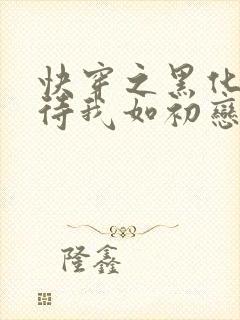 快穿之黑化
待我如初戀
隆鑫